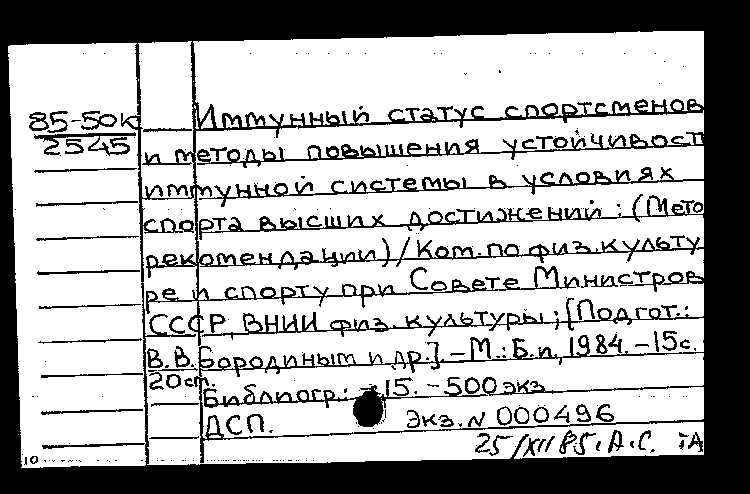 85-50к
2545
Иммунный статус спортсменов
и методы повышения устойчивост
иммунной системы в условиях
спорта высших достижений: (Мето
рекомендации)/Ком. по физ. культу
ре и спорту при Совете Министров
СССР, ВНИИ физ. культуры; [Подгот.:
В.В. Бородиным и др.]. - М.: Б.и., 1984. - 15с.
20 см.
Библиогр.: 15. - 500 экз
ДСП. Экз. N 000496
25/XII 85. А.С.
10